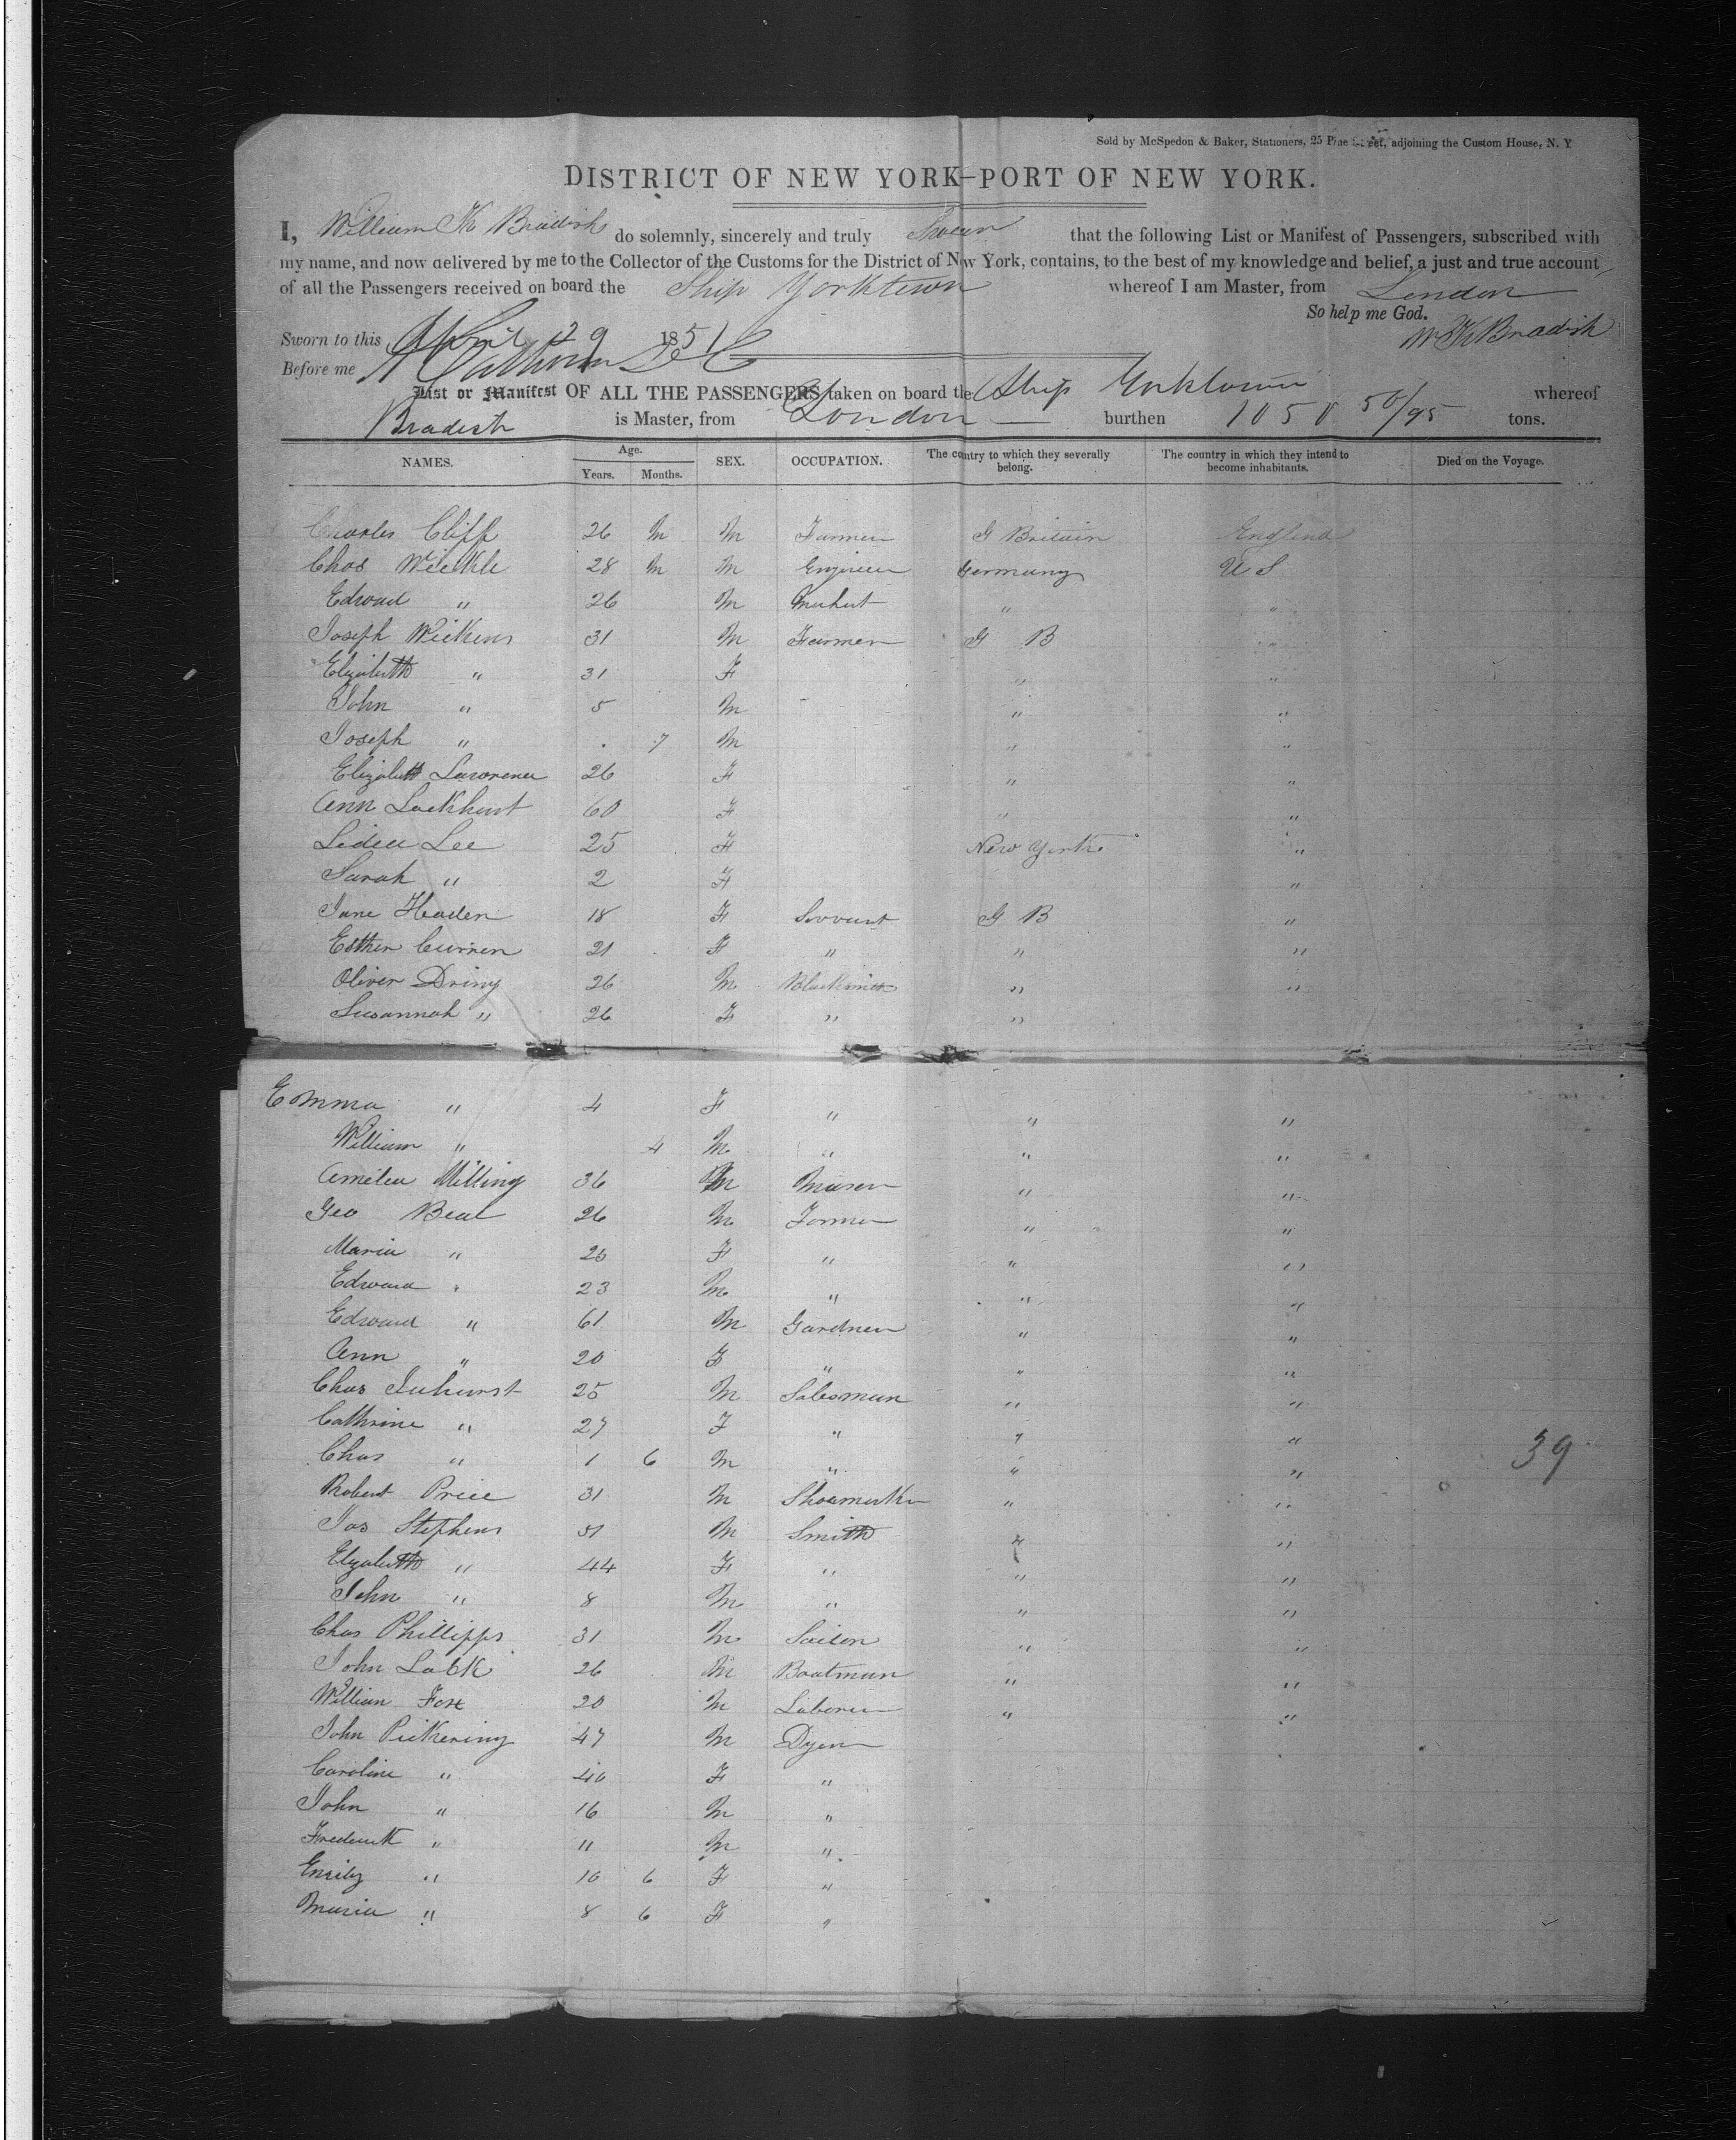 Sold by McSpedon & Baker, Stationers, 25 Pine Street, adjoining the Custom House, N. Y
DISTRICT OF NEW YORK—PORT OF NEW YORK.
I, William K Bradish do solemnly, sincerely and truly Swear that the following List or Manifest of Passengers, subscribed with
my name, and now delivered by me to the Collector of the Customs for the District of New York, contains, to the best of my knowledge and belief, a just and true account
of all the Passengers received on board the Ship Yorktown whereof I am Master, from London
So help me God.
Sworn to this April 29 1851 W K Bradish
Before me
List or Manifest OF ALL THE PASSENGERS taken on board the Ship Yorktown whereof
Bradish is Master, from London burthen 1050 50/95 tons.
NAMES. Age. Years. Months. SEX. OCCUPATION. The country to which they severally belong. The country in which they intend to become inhabitants. Died on the Voyage.
Charles Cliff 26 M M Farmer G Britain England
Chas Wieckle 28 M M Engineer Germany U S
Edward " 26 M " "
Joseph Wickens 31 M Farmer G B "
Elizabeth " 31 F " "
John " 5 M " "
Joseph " . 7 M " "
Elizabeth Lawrence 26 F " "
Ann Lockhurt 60 F " "
Lidia Lee 25 F New York "
Sarah " 2 F "
Jane Haden 18 F Servant G B "
Esther Curren 21 F " " "
Oliver Dring 26 M Blacksmith " "
Susannah " 26 F " "
Emma " 4 F " " "
William " 4 M " " "
Amelia Milling 36 M Mason " "
Geo Beal 26 M Farmer " "
Maria " 25 F " " "
Edward " 23 M " " "
Edward " 61 M Gardner " "
Ann " 20 F " " "
Chas Inhurst 25 M Salesman " "
Cathrine " 27 F " " "
Chas " 1 6 M " " " 39
Robert Price 31 M Shoemaker " "
Jas Stephens 51 M Smith " "
Elizabeth " 44 F " " "
John " 8 M " " "
Chas Phillipps 31 M Sailor " "
John Lock 26 M Boatman " "
William Fox 20 M Laborer " "
John Pickering 47 M Dyer
Caroline " 40 F "
John " 16 M "
Frederick " 11 M "
Emily " 10 6 F "
Maria " 8 6 F "